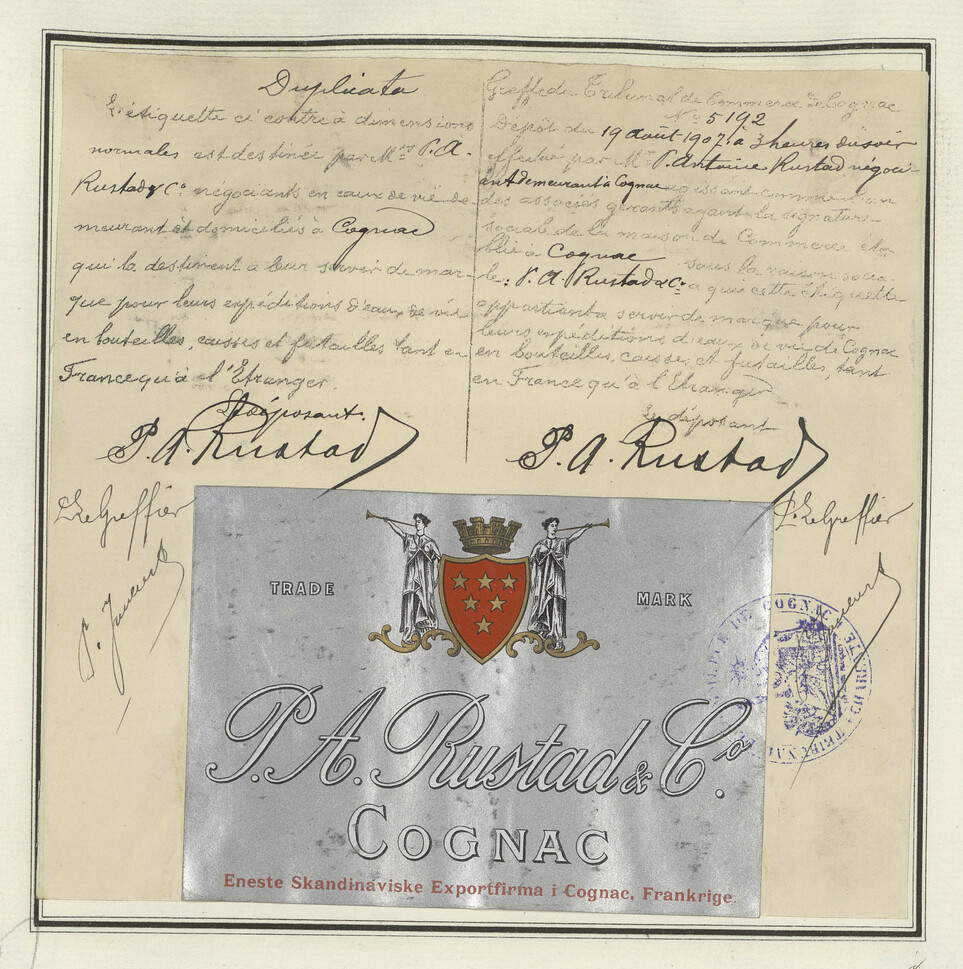 Duplicata
L'étiquette ci contre à dimensions
normales est destinée par Mrs P. A.
Rustad & Co négociants en eaux de vie de-
meurant et domiciliés à Cognac
qui la destinent a leur servir de mar-
que pour leurs expéditions d'eaux de vie
en bouteilles, caisses et futailles tant en
France qu'à l'Etranger.
Le déposant.
P. A. Rustad
Le Greffier
Greffe du Tribunal de Commerce de Cognac
No 5192
Dépôt du 19 août 1907, à 3 heures du soir
effectué par Mr P. Antoine Rustad négoci-
ant demeurant à Cognac agissant comme l'un
des associés gérants ayant la signature
sociale de la maison de Commerce éta-
blie à Cognac sous la raison socia-
le: P. A. Rustad & Co a qui cette étiquette
appartient a servir de marque pour
leurs expéditions d'eaux de vie de Cognac
en bouteilles, caisses et futailles, tant
en France qu'à l'Etranger
Le déposant
P. A. Rustad
P. Le Greffier
TRADE MARK
P. A. Rustad & Co.
COGNAC
Eneste Skandinaviske Exportfirma i Cognac, Frankrige.
DE COGNAC
TRIBUNAL